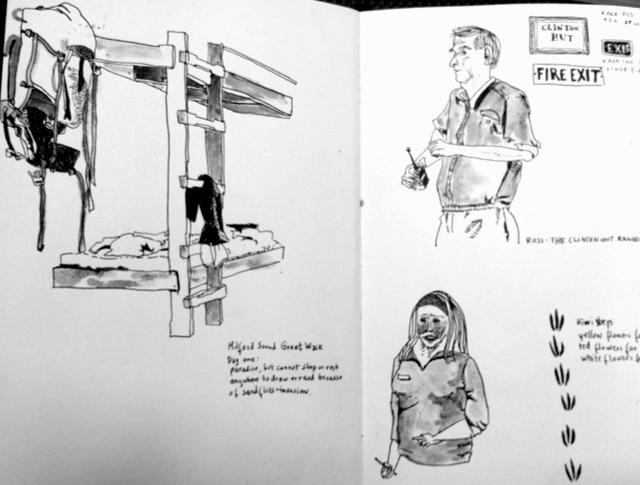 Milford Sound Great Walk
Day one:
paradise, but cannot stop or rest
anywhere to draw or read because
of sandflies-invasion.
CLINTON
HUT
EXIT
FIRE EXIT
ROSS - THE CLINTON HUT RANGER
kiwi steps
yellow flowers
red flowers for
white flowers